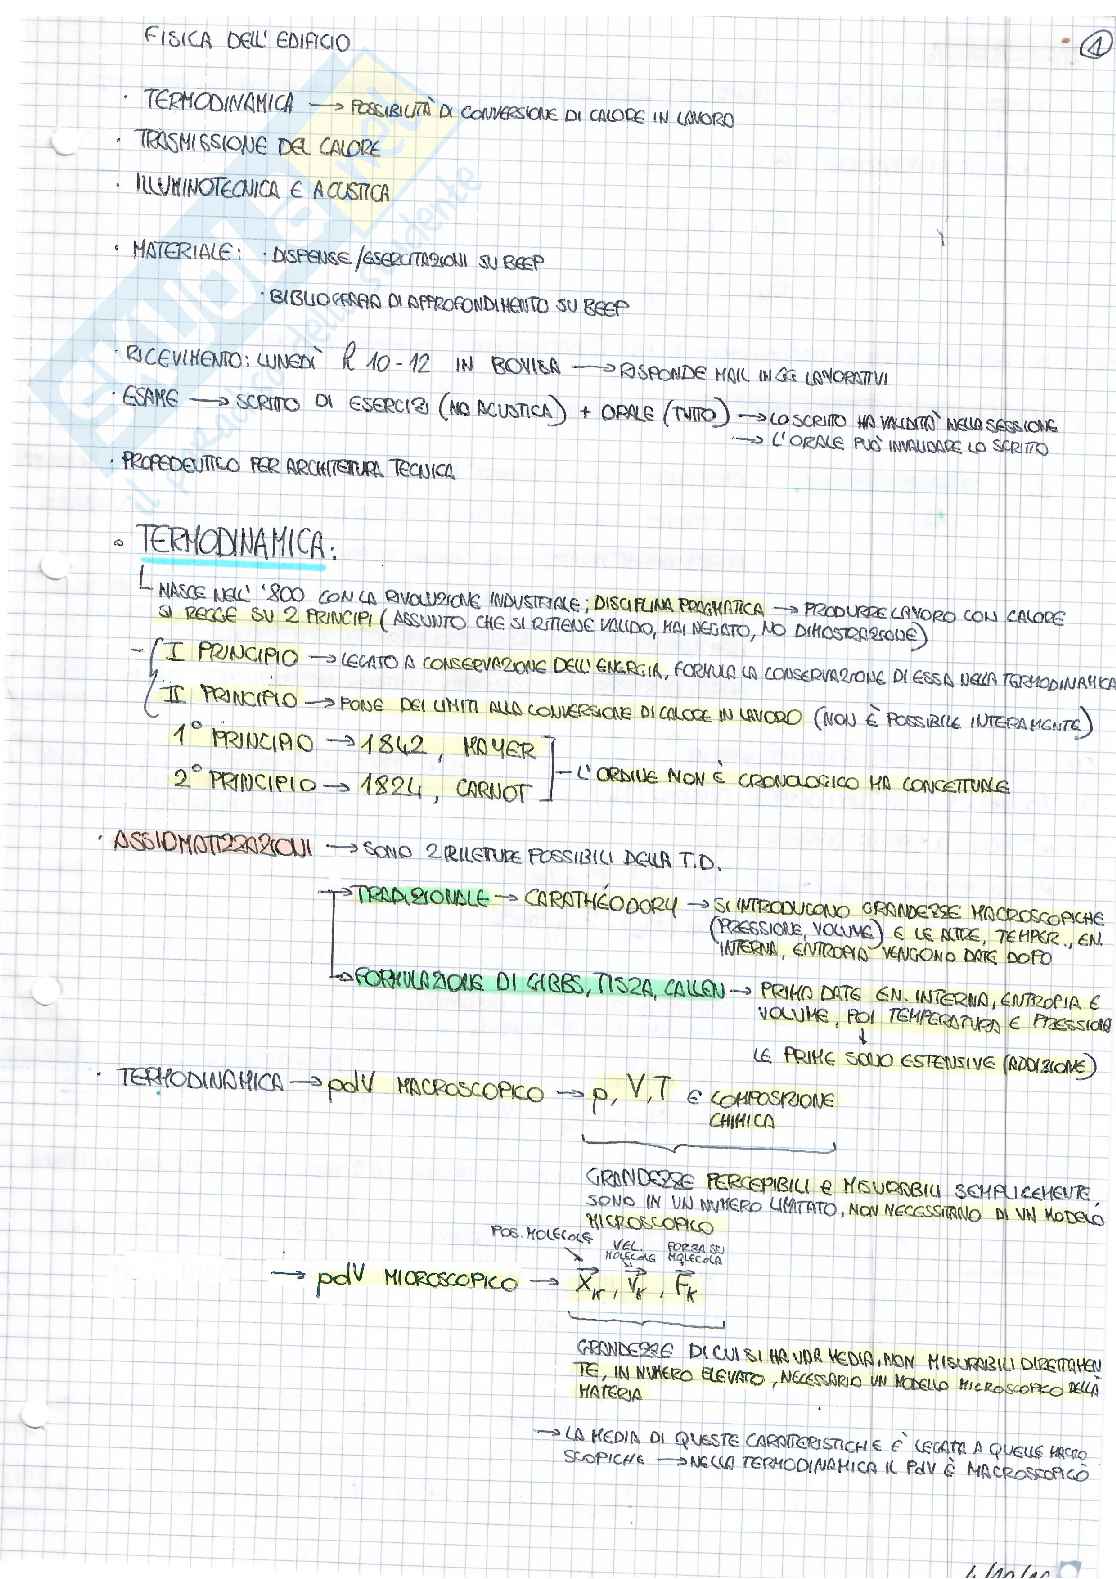 FISICA DELL'EDIFICIO
1
· TERMODINAMICA → POSSIBILITÀ DI CONVERSIONE DI CALORE IN LAVORO
· TRASMISSIONE DEL CALORE
· ILLUMINOTECNICA E ACUSTICA
· MATERIALE: · DISPENSE/ESERCITAZIONI SU BEEP
· BIBLIOGRAFIA DI APPROFONDIMENTO SU BEEP
· RICEVIMENTO: LUNEDÌ h 10-12 IN BOVISA → RISPONDE MAIL IN GG LAVORATIVI
· ESAME → SCRITTO DI ESERCIZI (NO ACUSTICA) + ORALE (TUTTO) → LO SCRITTO HA VALIDITÀ NELLA SESSIONE
→ L'ORALE PUÒ INVALIDARE LO SCRITTO
· PROPEDEUTICO PER ARCHITETURA TECNICA
∘ TERMODINAMICA:
NASCE NELL' '800 CON LA RIVOLUZIONE INDUSTRIALE; DISCIPLINA PRAGMATICA → PRODURRE LAVORO CON CALORE
SI REGGE SU 2 PRINCIPI (ASSUNTO CHE SI RITIENE VALIDO, MAI NEGATO, NO DIMOSTRAZIONE)
I PRINCIPIO → LEGATO A CONSERVAZIONE DELL'ENERGIA, FORMULA LA CONSERVAZIONE DI ESSA NELLA TERMODINAMICA
II PRINCIPIO → PONE DEI LIMITI ALLA CONVERSIONE DI CALORE IN LAVORO (NON È POSSIBILE INTERAMENTE)
1° PRINCIPIO → 1842, MAYER
2° PRINCIPIO → 1824, CARNOT
L'ORDINE NON È CRONOLOGICO MA CONCETTUALE
· ASSIOMATIZZAZIONI → SONO 2 RILETURE POSSIBILI DELLA T.D.
→ TRADIZIONALE → CARATHÉODORY → SI INTRODUCONO GRANDEZZE MACROSCOPICHE
(PRESSIONE, VOLUME) E LE ALTRE, TEMPER., EN.
INTERNA, ENTROPIA VENGONO DATE DOPO
→ FORMULAZIONE DI GIBBS, TISZA, CALLEN → PRIMA DATE EN. INTERNA, ENTROPIA E
VOLUME, POI TEMPERATURA E PRESSIONE
↓
LE PRIME SONO ESTENSIVE (ADDIZIONE)
· TERMODINAMICA → pdV MACROSCOPICO → p, V, T E COMPOSIZIONE
CHIMICA
GRANDEZZE PERCEPIBILI E MISURABILI SEMPLICEMENTE,
SONO IN UN NUMERO LIMITATO, NON NECESSITANO DI UN MODELLO
MICROSCOPICO
POS. MOLECOLE VEL. MOLECOLE FORZA SU MOLECOLA
→ pdV MICROSCOPICO → X⃗k, V⃗k, F⃗k
GRANDEZZE DI CUI SI HA UNA MEDIA, NON MISURABILI DIRETTAMEN
TE, IN NUMERO ELEVATO, NECESSARIO UN MODELLO MICROSCOPICO DELLA
MATERIA
→ LA MEDIA DI QUESTE CARATTERISTICHE È LEGATA A QUELLE MACRO
SCOPICHE → NELLA TERMODINAMICA IL PdV È MACROSCOPICO